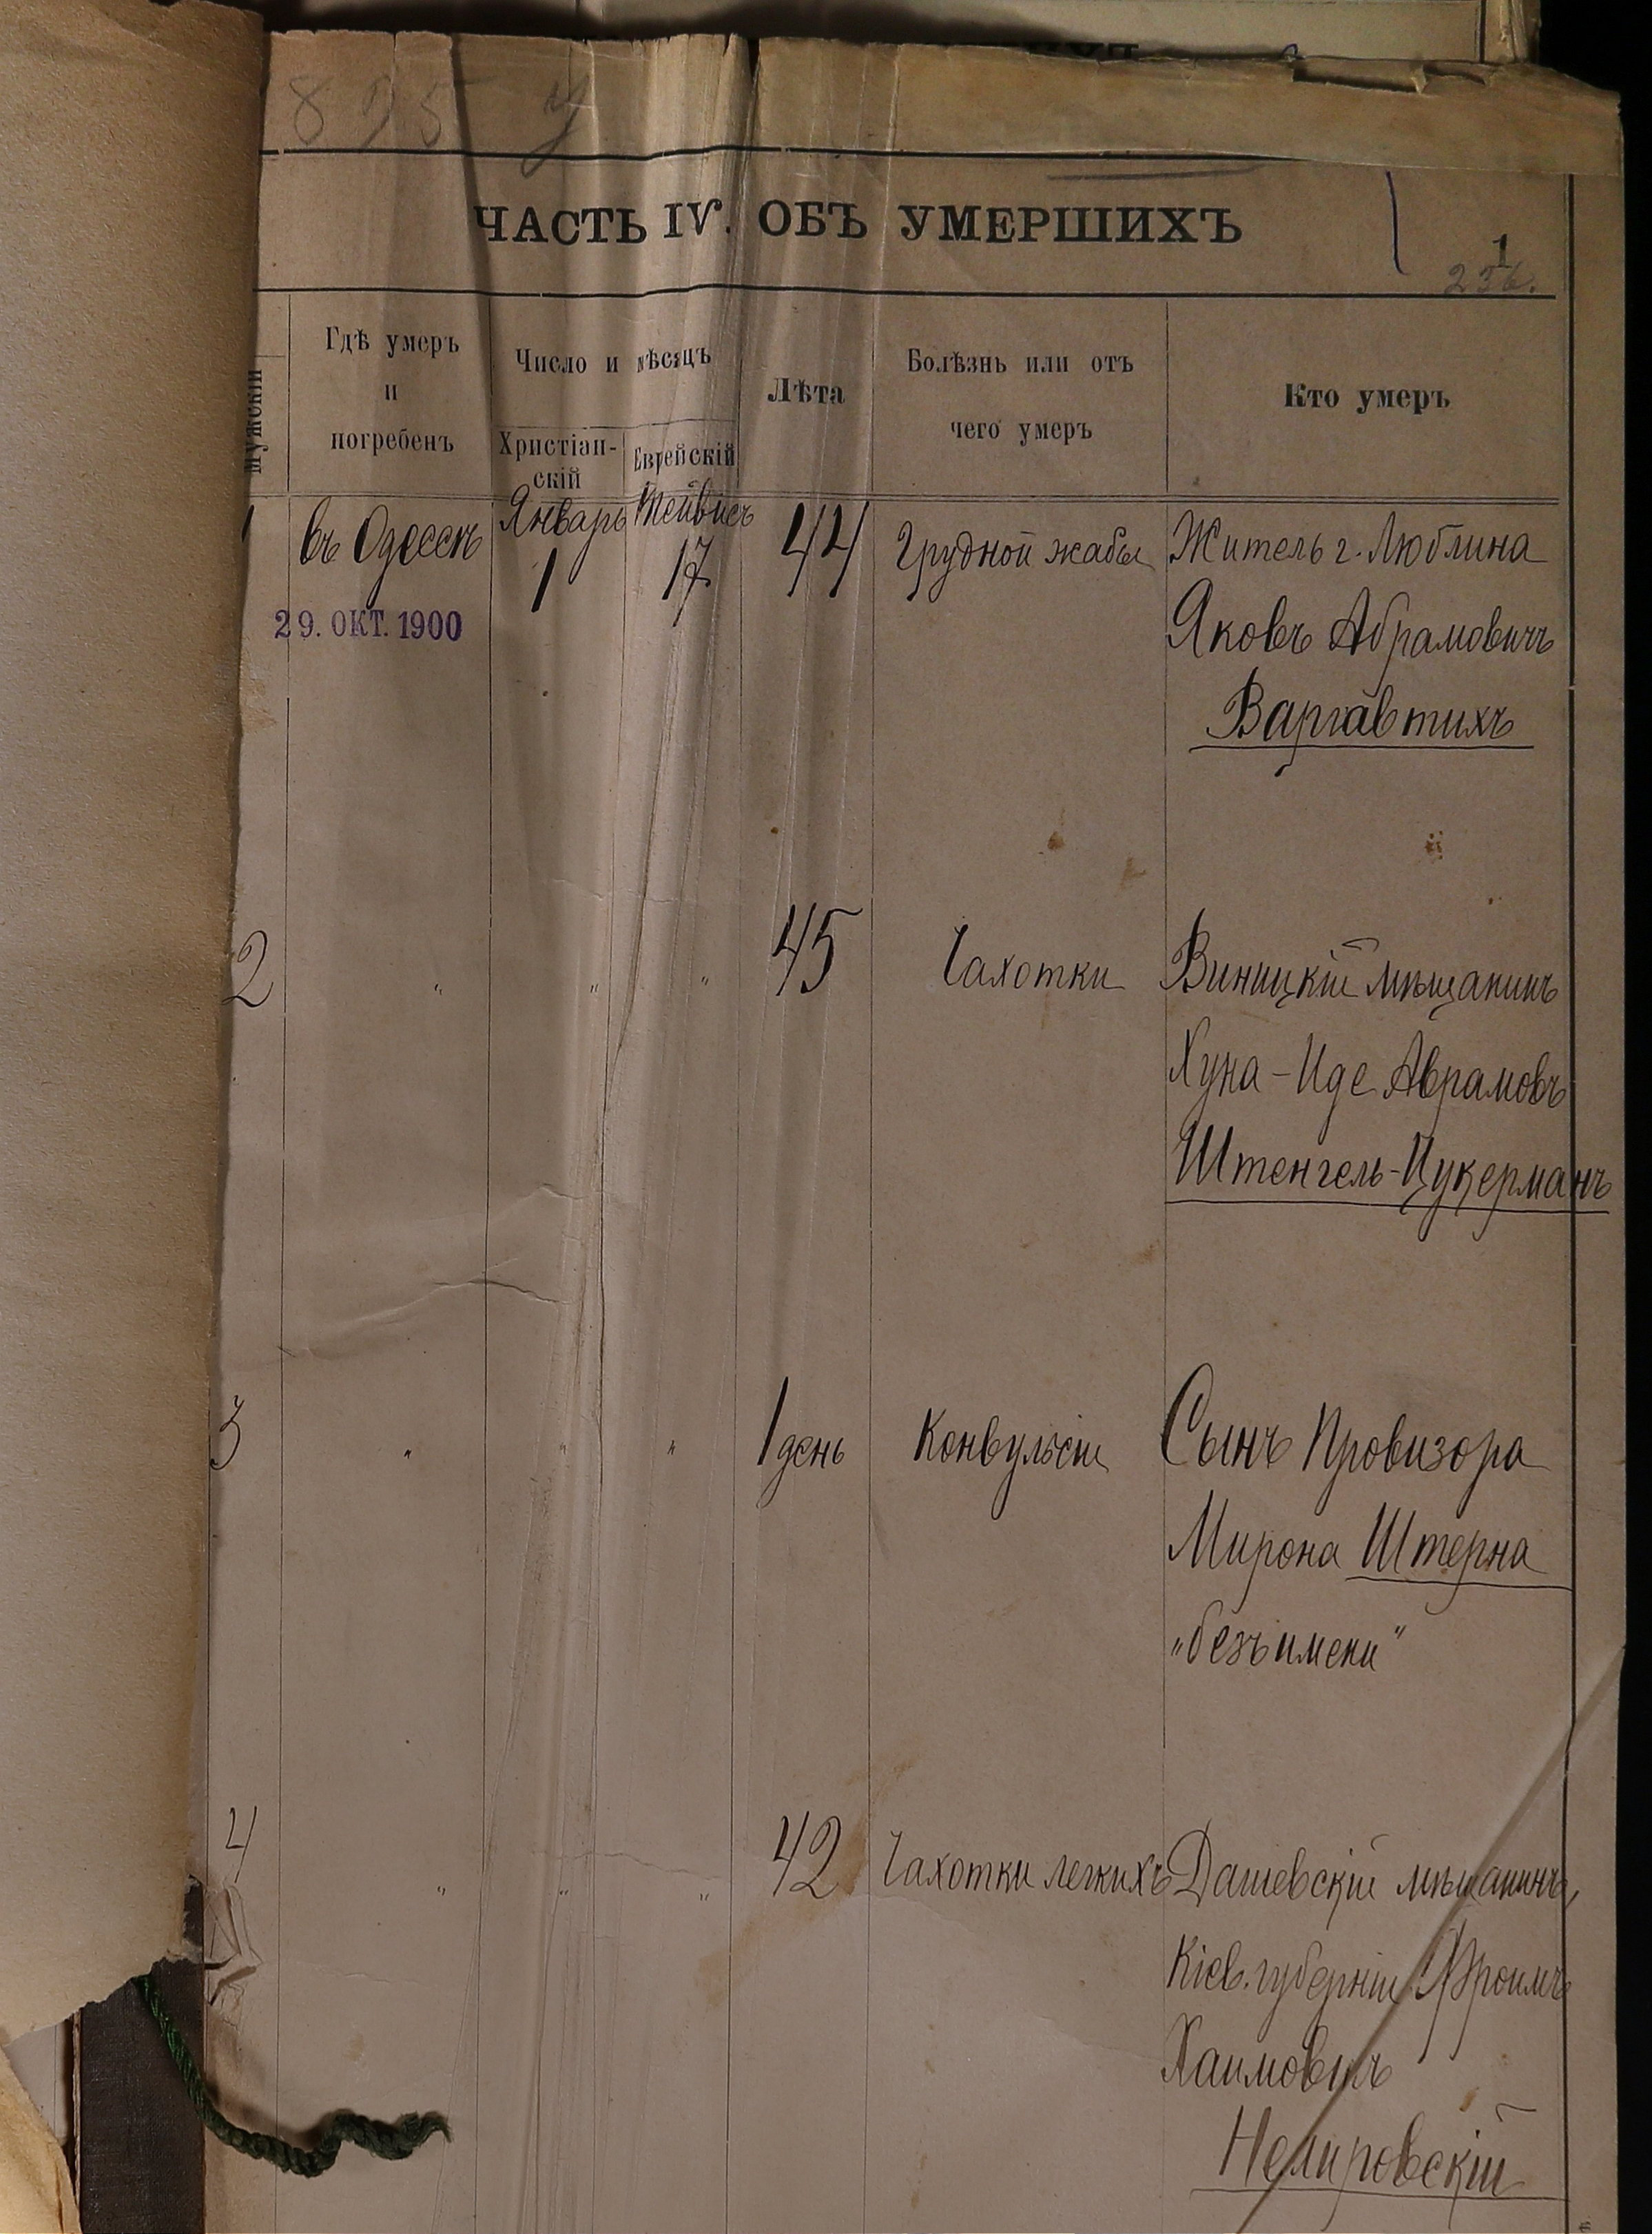 825
ЧАСТЬ IV. ОБЪ УМЕРШИХЪ
1
236.
Мужскій
Гдѣ умеръ
и
погребенъ
Число и мѣсяцъ
Христіан-
скій
Еврейскій
Лѣта
Болѣзнь или отъ
чего умеръ
Кто умеръ
1 въ Одессѣ Январь 1 Тейвисъ 17 44 Грудной жабы Житель г. Люблина
29. ОКТ. 1900
Яковъ Абрамовичъ
Варгавтихъ
2 " " " 45 Чахотки Виницкій мѣщанинъ
Хуна-Иде Аврамовъ
Штенгель-Цукерманъ
3 " " " 1 день Конвульсіи Сынъ Провизора
Мирона Штерна
„безъ имени"
4 " " " 42 Чахотки легкихъ Дашевскій мѣщанинъ,
Кіев. губерніи Фроимъ
Хаимовичъ
Немировскій